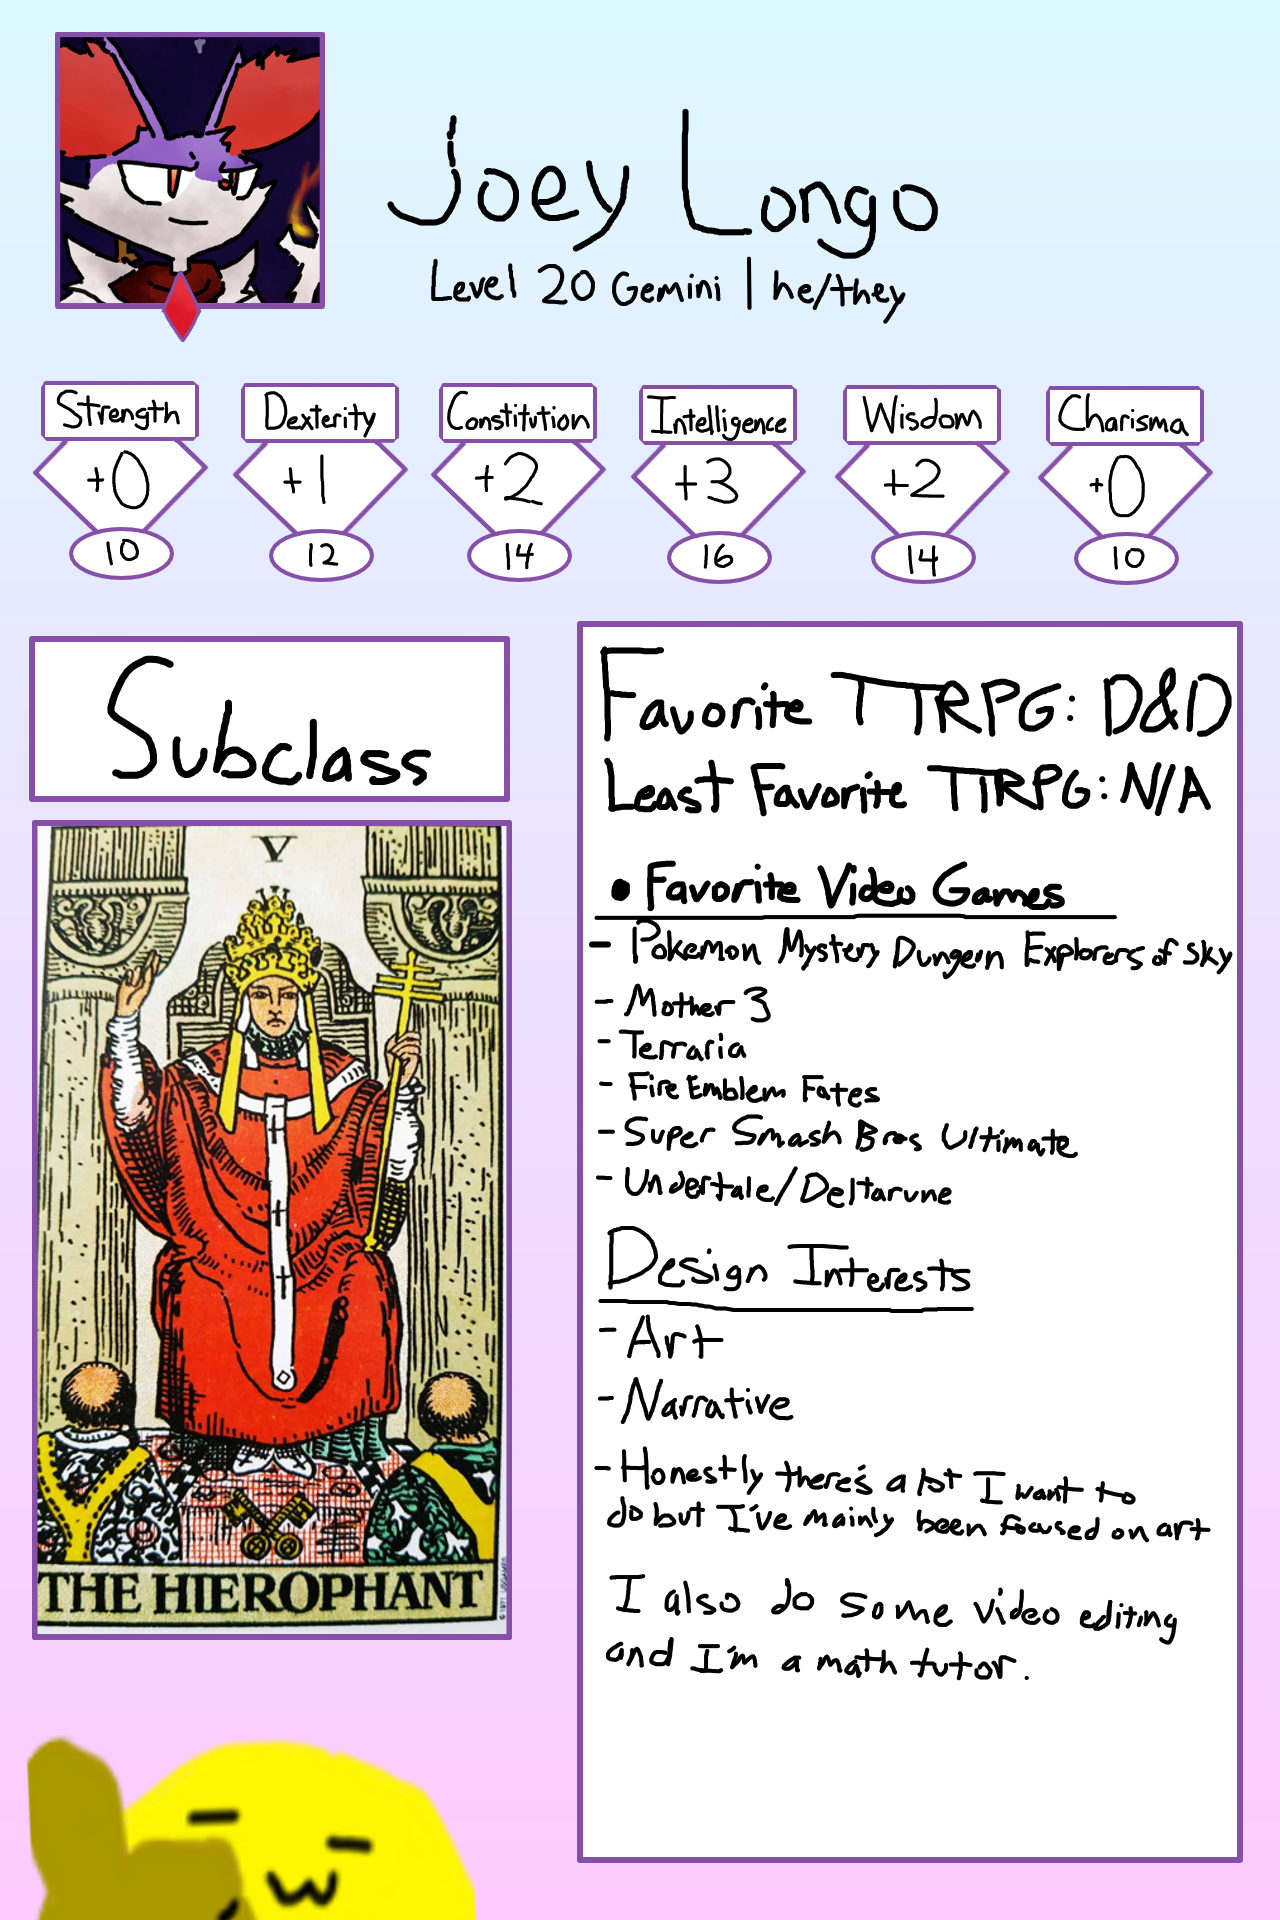 Joey Longo
Level 20 Gemini | he/they
Strength
Dexterity
Constitution
Intelligence
Wisdom
Charisma
+0
+1
+2
+3
+2
+0
10
12
14
16
14
10
Subclass
V
THE HIEROPHANT
© 1971 U.S.GAMES
Favorite TTRPG: D&D
Least Favorite TTRPG: N/A
• Favorite Video Games
- Pokemon Mystery Dungeon Explorers of Sky
- Mother 3
- Terraria
- Fire Emblem Fates
- Super Smash Bros Ultimate
- Undertale/Deltarune
Design Interests
- Art
- Narrative
- Honestly there's a lot I want to
do but I've mainly been focused on art
I also do some video editing
and I'm a math tutor.